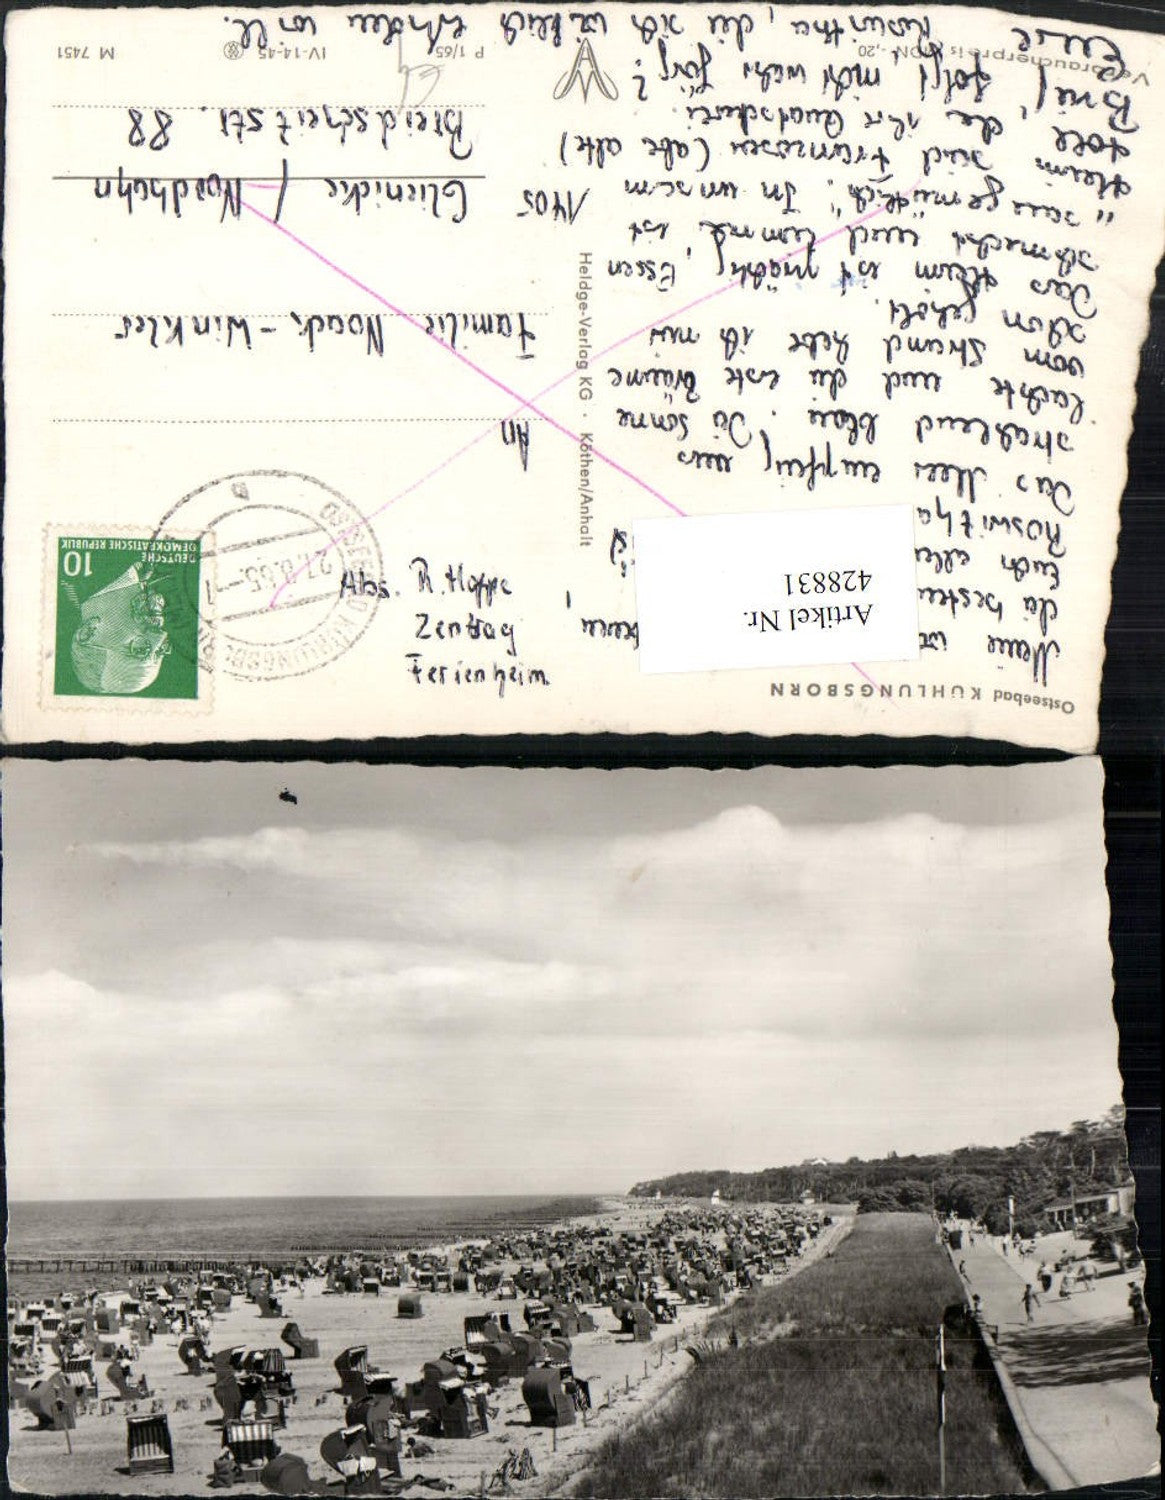 Ostseebad KÜHLUNGSBORN
Meine
die besten
Euch allen
Roswitha
Das Meer empfing uns
strahlend blau. Die Sonne
lachte und die erste Bräune
vom Strand habe ich mir
schon geholt.
Das Heim ist prächtig, Essen
schmeckt und Zimmer ist
"sau gemütlich". In unserem
Heim sind Franzosen (alte
toll, die ihr Quatscherei.
Brief folgt, nicht wahr Jörg?
Eure
Roswitha, die sich wirklich erholen will.
Verbraucherpreis MDN -,20
Artikel Nr.
428831
Heldge-Verlag KG · Köthen/Anhalt
Abs. R. Hoppe
Zentrag
Ferienheim
DEUTSCHE
DEMOKRATISCHE REPUBLIK
10
OSTSEEBAD KÜHLUNGSBORN
27.6.65
a
An
Familie Noack-Winkler
1405 Glienicke / Nordbahn
Breidscheitstr. 88
P 1/65 IV-14-45 M 7451